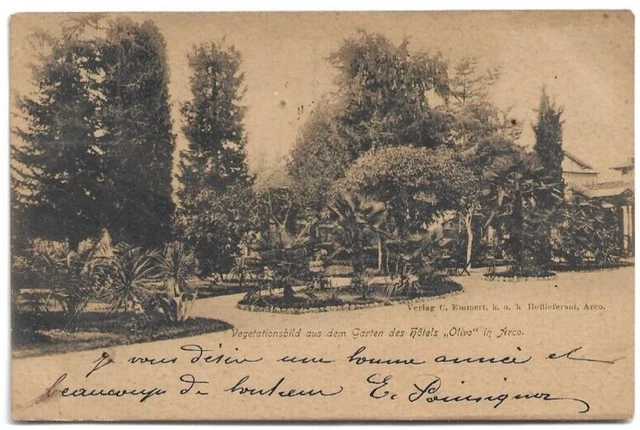 Verlag C. Emmert, k. u. k Hoflieferant, Arco.
Vegetationsbild aus dem Garten des Hôtels „Olivo" in Arco.
je vous désire une bonne année et
beaucoup de bonheur E.